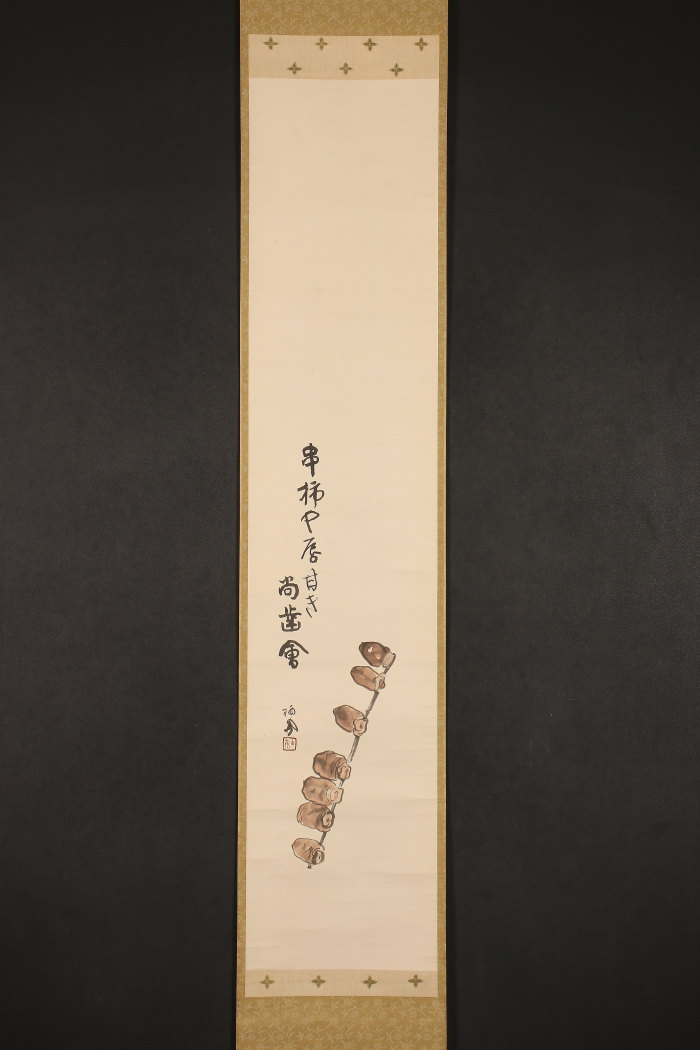 串柿や唇甘き
尚歯會